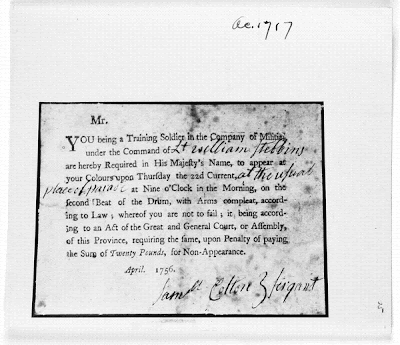 Ac. 1717
Mr.
YOU being a Training Soldier in the Company of Militia,
under the Command of Lt William Stebbins
are hereby Required in His Majeſty's Name, to appear at
your Colours upon Thurſday the 22d Current, at the usual
place of parade at Nine o'Clock in the Morning, on the
ſecond Beat of the Drum, with Arms compleat, accord-
ing to Law; whereof you are not to fail; it being accord-
ing to an Act of the Great and General Court, or Aſſembly,
of this Province, requiring the ſame, upon Penalty of paying
the Sum of Twenty Pounds, for Non-Appearance.
April. 1756.
Sam ll Colton Sergant